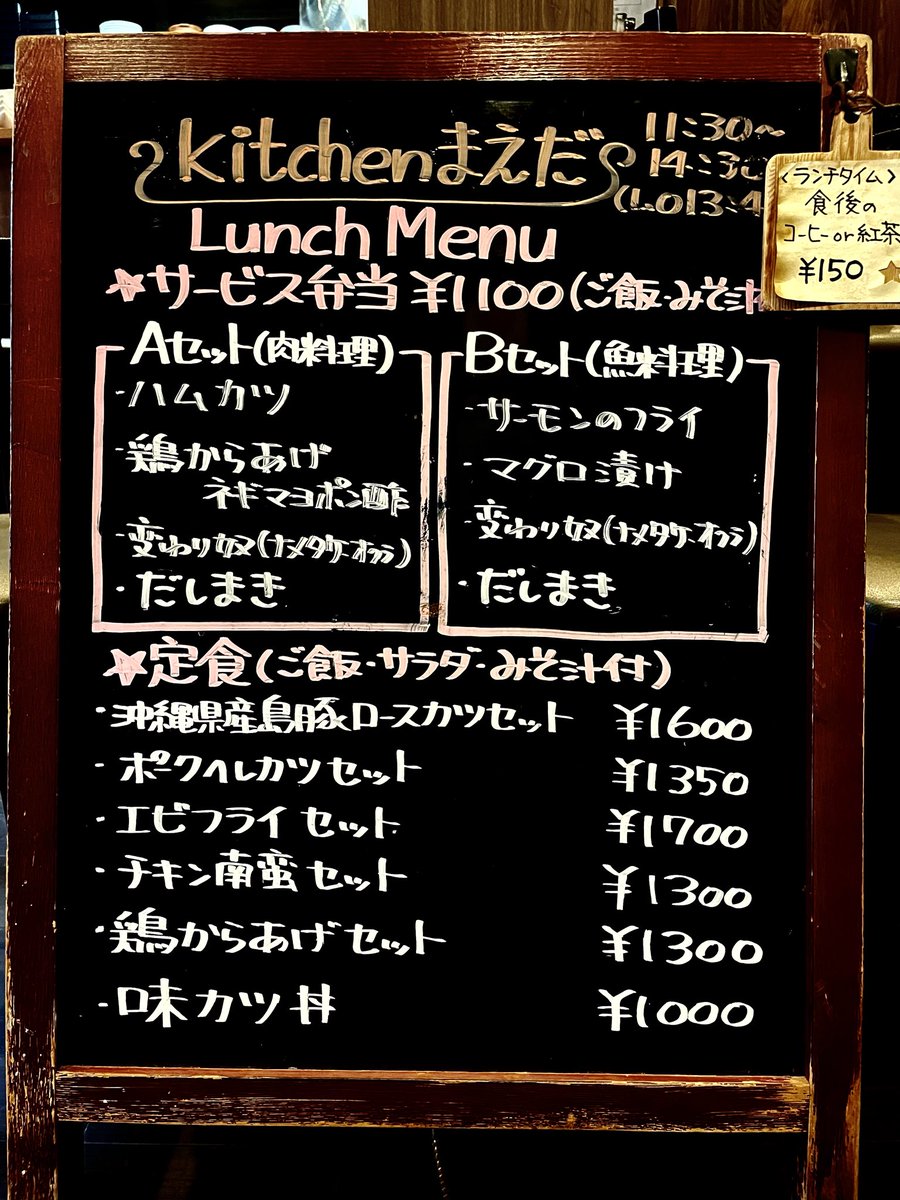 Kitchenまえだ
11:30〜
14:30
(L.O13:4
Lunch Menu
☆サービス弁当 ¥1100(ご飯・みそ汁
〈ランチタイム〉
食後の
コーヒー or 紅茶
¥150 ☆
Aセット(肉料理)
・ハムカツ
・鶏からあげ
ネギマヨポン酢
・変わり奴(ナメタケ・オクラ)
・だしまき
Bセット(魚料理)
・サーモンのフライ
・マグロ漬け
・変わり奴(ナメタケ・オクラ)
・だしまき
☆定食(ご飯・サラダ・みそ汁付)
・沖縄県産島豚ロースカツセット ¥1600
・ポークヘレカツセット ¥1350
・エビフライセット ¥1700
・チキン南蛮セット ¥1300
・鶏からあげセット ¥1300
・味カツ丼 ¥1000